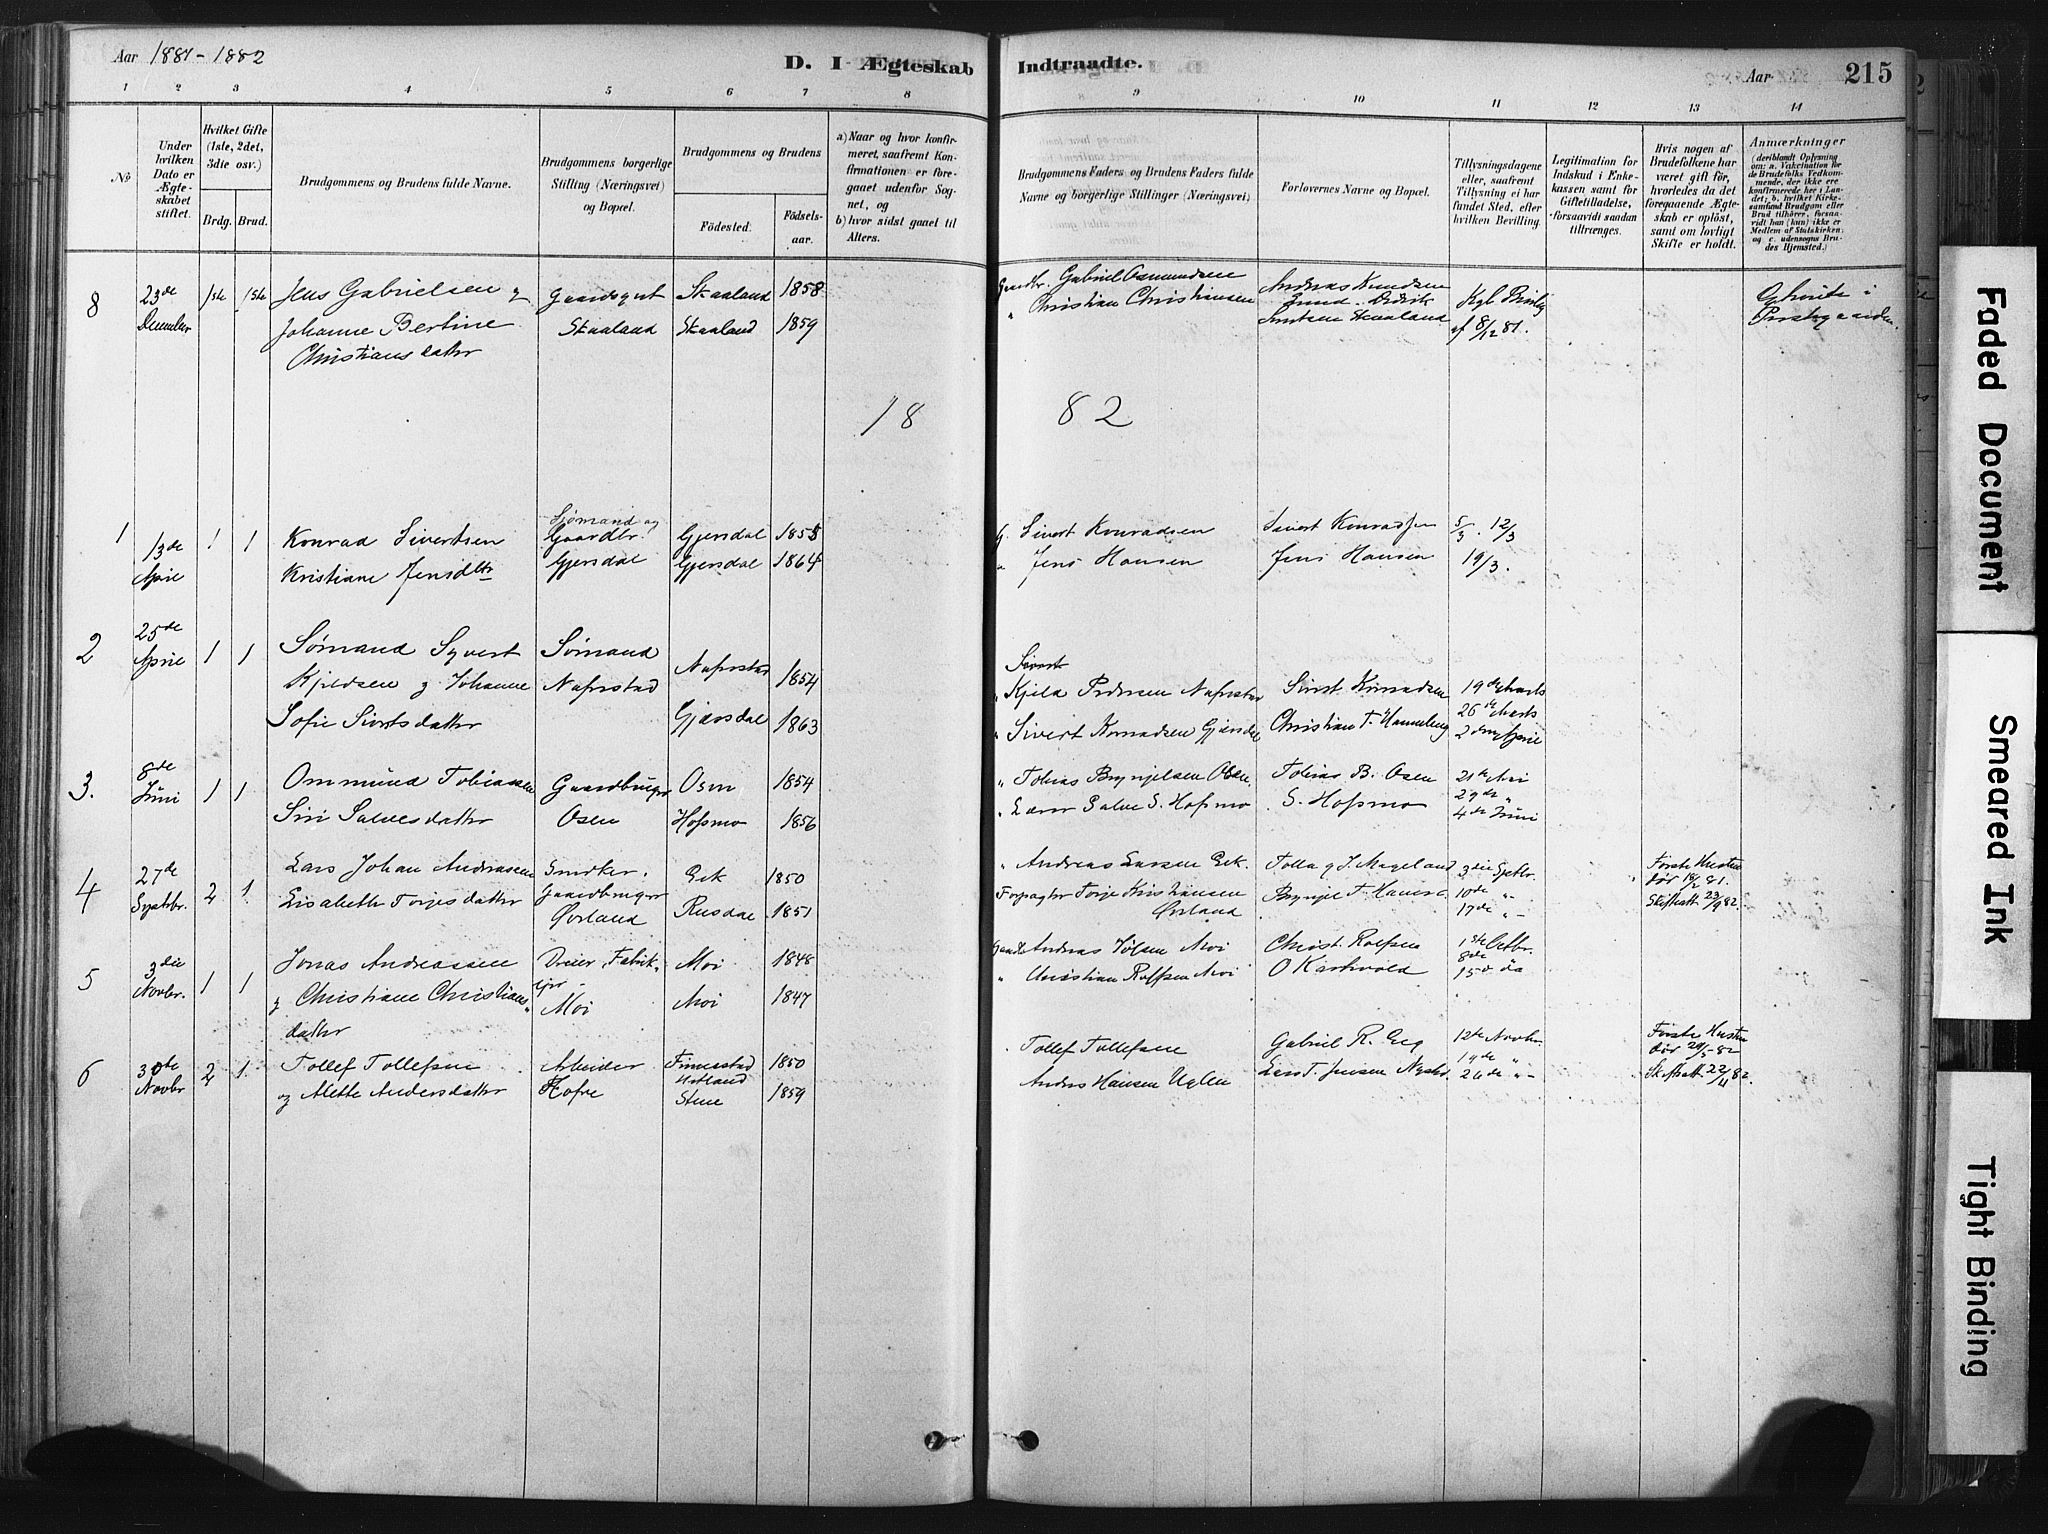 Aar 1881-1882
D. I Ægteskab Indtraadte.
Aar 215
1 2 3 4 5 6 7 8 9 10 11 12 13 14
No
Under hvilken Dato er Ægteskabet stiftet.
Hvilket Gifte (1ste, 2det, 3die osv.)
Brdg. Brud.
Brudgommens og Brudens fulde Navne.
Brudgommens borgerlige Stilling (Næringsvei) og Bopæl.
Brudgommens og Brudens
Födested.
Födselsaar.
a) Naar og hvor konfirmeret, saafremt Konfirmationen er foregaaet udenfor Sognet, og
b) hvor sidst gaaet til Alters.
Brudgommens Faders og Brudens Faders fulde Navne og borgerlige Stillinger (Næringsvei)
Forlovernes Navne og Bopæl.
Tillysningsdagene eller, saafremt Tillysning ei har fundet Sted, efter hvilken Bevilling
Legitimation for Indskud i Enkekassen samt for Giftetilladelse, forsaavidt saadan tiltrænges.
Hvis nogen af Brudefolkene har været gift för, hvorledes da det foregaaende Ægteskab er oplöst, samt om lovligt Skifte er holdt.
Anmærkninger
(deriblandt Oplysning om: a. Vakcination for de Brudefolks Vedkommende, der ikke ere konfirmerede her i Landet; b. hvilket Kirkesamfund Brudgom eller Brud tilhörer, forsaavidt han (hun) ikke er Medlem af Statskirken; og c. udensogns Brudes Hjemsted.)
8 23de December 1ste 1ste
Jens Gabrielsen og
Johanne Bertine
Christiansdatter
Skaaland
Skaaland 1858
Skaaland 1859
Gabriel Osmundsen
" Christian Christiansen
Andreas Knudsen
Skaaland
Kgl
af 8/12 81.
18 82
1 13de April 1 1
Konrad Sivertsen
Kristiane Jensdtr
Sjømand og
Gaardbr.
Gjersdal
Gjersdal 1858
Gjersdal 1864
G. Sivert Konradsen
" Jens Hansen
Sivert Konradsen
Jens Hansen
5/3. 12/3
19/3.
2 25de April 1 1
Sømand Syvert
Kjeldsen og Johanne
Sofie Sivertsdatter
Sømand
Nafrstad
Nafrstad 1854
Gjærsdal 1863
Sivert
" Kjeld Pedersen Nafrstad
" Sivert Konradsen Gjersdal
Sivert Konradsen
Christian T.
19de Marts
26de Marts
2den April
3. 8de Juni 1 1
Ommund Tobiassen
Siri Salvesdatter
Gaardbruger
Osen
Osen 1854
Hofsmo 1856
" Tobias Brynjelsen Osen
" Salve S. Hofsmo
Tobias B. Osen
S. Hofsmo
21de Mai
29de "
4de Juni
4 27de Septbr. 2 1.
Lars Johan Andreasen
Elisabeth Torjesdatter
Snedker.
Gaardbruger
Øvrland
Eek 1850
Rusdal 1851
" Andreas Larsen Eek.
Forpagter Torje Kristiansen
Øvrland
Tolla
Brynjel T.
3die Septbr.
10de " -
17de " -
Første Hustru
død 18/2 81.
Skifteatt. 23/9 82.
5 3die Novbr. 1 1
Jonas Andreassen
og Christiane Christians
datter
Dreier, Fabrik
Moi
Moi 1848
Moi 1847
Andreas Moi
" Christian Rolfsen Moi
Christ. Rolfsen
1ste Octbr.
8de
15de
6 30te Novbr 2 1.
Tollef Tollefsen
og Alette Andersdatter
Arbeider
Finnestad 1850
1859
Tollef Tollefsen
Anders Hansen Uglen
Gabriel R. Eeg
Lars T. Jensen
12te Novbr
19de "
26de " -
Første Hustru
død 29/5-82
Skifteatt. 22/11 82.
Faded Document
Smeared Ink
Tight Binding